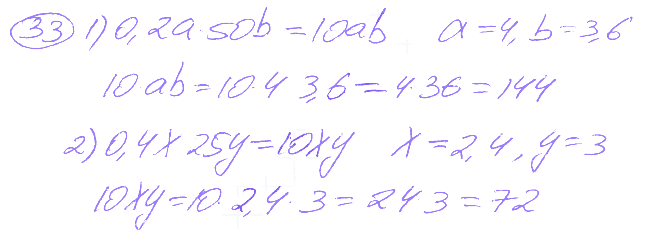 33 1) 0,2a·50b = 10ab a = 4, b = 3,6
10ab = 10·4 3,6 = 4·36 = 144
2) 0,4x 25y = 10xy x = 2,4, y = 3
10xy = 10·2,4·3 = 24 3 = 72